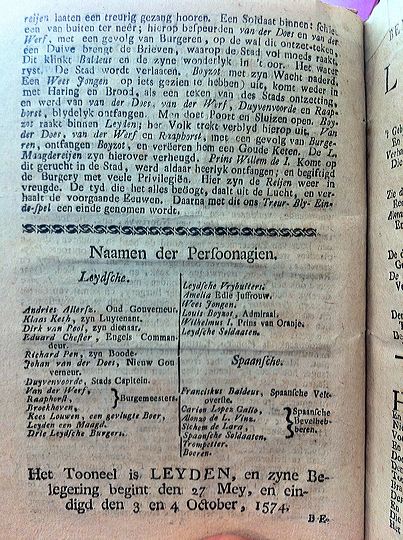 reijen laaten een treurig gezang hooren. Een Soldaat binnen: schiet
een van buiten ter neêr; hierop bespeurden van der Does en van der
Werf, met een gevolg van Burgeren, op de wal dit ontzet-teken,
een Duive brengt de Brieven, waarop de Stad vol moeds raakt.
Dit klinkt Baldeus en de zyne wonderlyk in 't oor. Het water
ryst. De Stad word verlaaten. Boyzot met zyn Wacht naderd.
Een Wees Jongen op iets gezien te hebben) uit, komt weder in
met Haring en Brood, als een teken van de Stads ontzetting,
en werd van van der Does, van der Werf, Duyvenvoorde en Raap-
horst, blydelyk ontfangen. Men doet Poort en Sluizen open. Boy-
zot raakt binnen Leyden; her Volk trekt verblyd hierop uit. Van
der Does, van der Werf en Raaphorst, met een gevolg van Burge-
ren, ontfangen Boyzot, en vereeren hem een Goude Keten. De L.
Maagdereijen zyn hierover verheugd. Prins Willem de I. Komt op
dit gerucht in de Stad, werd aldaar heerlyk ontfangen; en begiftigd
de Burgery met veele Privilegiën. Hier zyn de Reijen weer in
vreugde. De tyd die het alles beoogt, daalt uit de Lucht, en ver-
haalt de voorgaande Eeuwen. Daarna met dit ons Treur-Bly-Ein-
de-spel een einde genomen wordt.
Naamen der Persoonagien.
Leydsche.
Andries Allertsz. Oud Gouverneur.
Klaas Kech, zyn Luytenant.
Dirk van Pool, zyn dienaar.
Eduard Chester, Engels Comman-
deur.
Richard Pen, zyn Boode.
Johan van der Does, Nieuw Gou-
verneur.
Duyvenvoorde, Stads Capitein.
Van der Werf,
Raaphorst, Burgemeesters.
Broekhoven,
Kees Louwen, een gevlugte Boer,
Leyden een Maagd.
Drie Leydsche Burgers.
Leydsche Vrybuiters.
Amelia Edle Juffrouw.
Wees Jongen.
Louis Boyzot, Admiraal.
Wilhelmus I. Prins van Oranje.
Leydsche Soldaaten.
Spaansche.
Franciskus Baldeus, Spaansche Velt-
overste.
Carion Lopez Gallo, Spaansche
Alonzo de L. Vinz. Bevelheb-
Sichem de Lara, beren.
Spaansche Soldaaten.
Trompetter.
Boeren.
Het Tooneel is LEYDEN, en zyne Be-
legering begint den 27 Mey, en ein-
digd den 3 en 4 October, 1574.
B E-